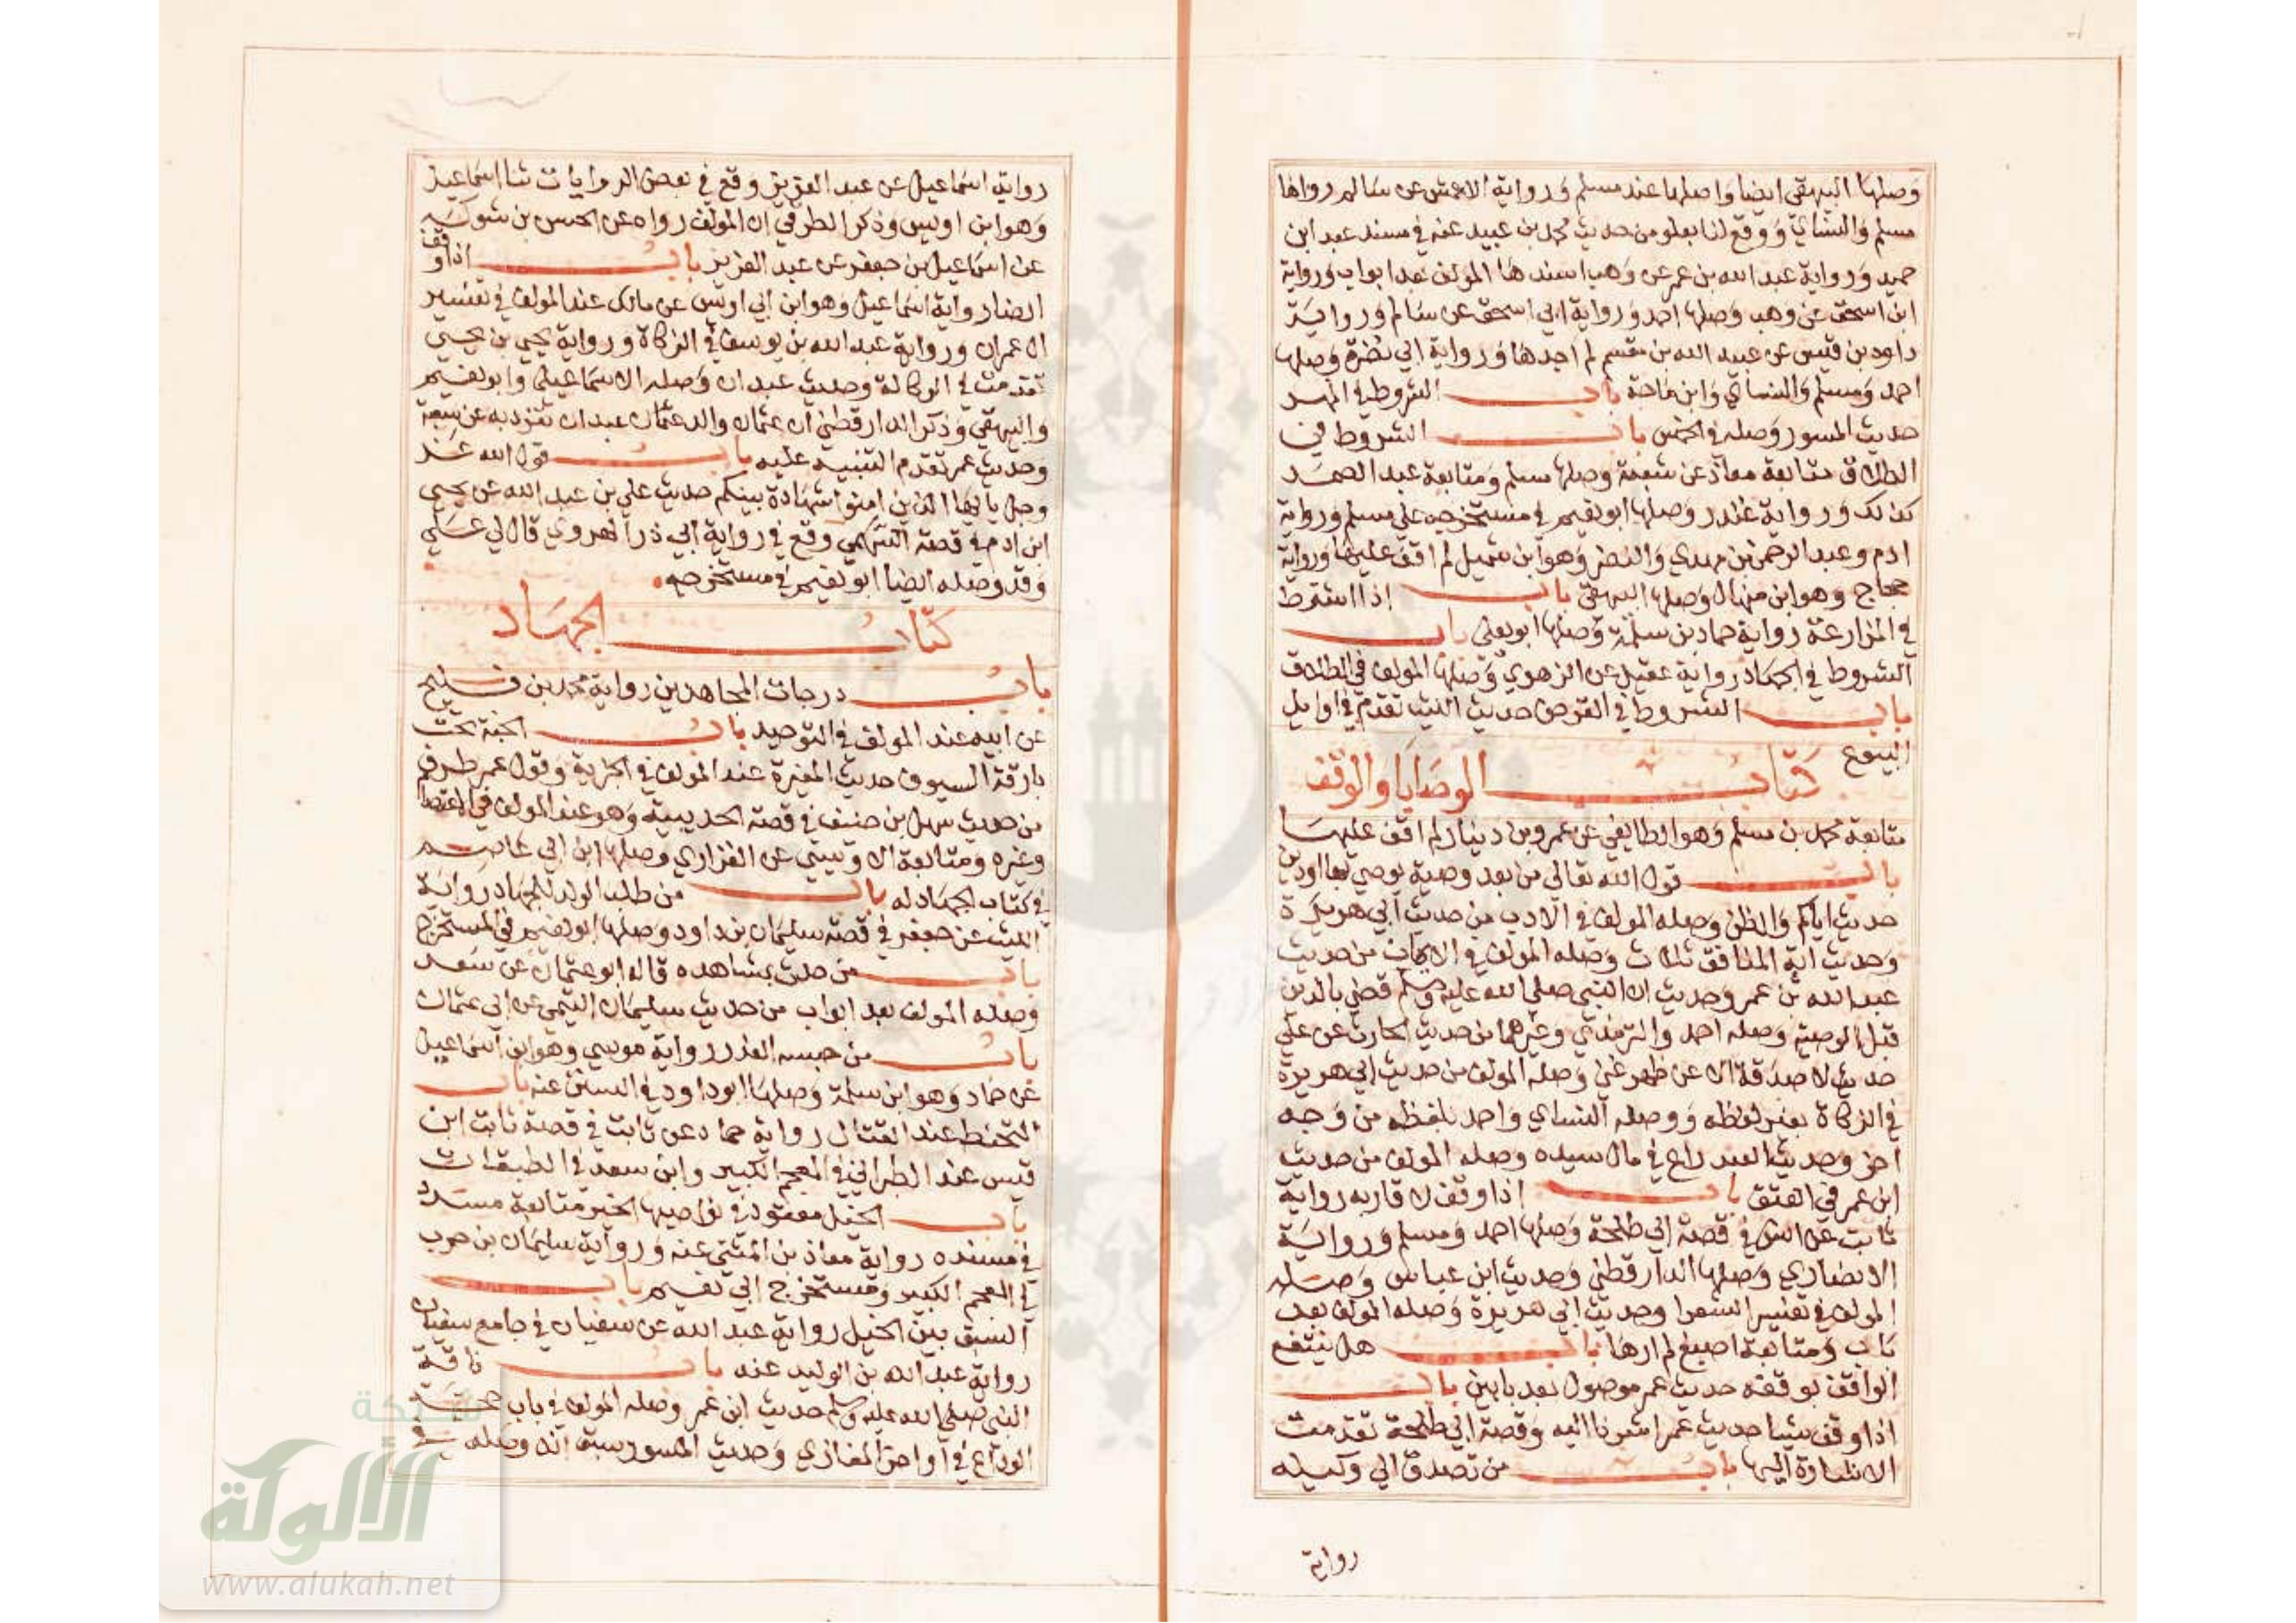 وصلها البيهقي ايضا واصلها عند مسلم ورواية الاعمش عن سالم رواها
مسلم والنسائي ووقع لنا بعلو من حديث محمد بن عبيد عنه في مسند عبد ابن
حميد ورواية عبد الله بن عمر عن وهب اسندها المولف بعد ابواب ورواية
ابن اسحق عن وهب وصلها احمد ورواية ابي اسحق عن سالم ورواية
داود بن قيس عن عبيد الله بن مقسم لم اجدها ورواية ابي نضرة وصلها
احمد ومسلم والنساي وابن ماجة باب الشروط في المهر
حديث المسور وصله في الخمس باب الشروط في
الطلاق متابعة معاذ عن شعبة وصلها مسلم ومتابعة عبد الصمد
كذلك ورواية غندر وصلها ابو نعيم في مستخرجه على مسلم ورواية
ادم وعبد الرحمن بن مهدي والنضر وهو ابن شميل لم اقف عليها ورواية
حجاج وهو ابن منهال وصلها البيهقي باب اذا اشترط
في المزارعة رواية حماد بن سلمة وصلها ابو يعلى باب
الشروط في الجهاد رواية عقيل عن الزهري وصلها المولف في الطلاق
باب الشروط في القرض حديث الليث تقدم في اوايل
البيوع
كتاب الوصايا والوقف
متابعة محمد بن مسلم وهو الطايفي عن عمرو بن دينار لم اقف عليها
باب قول الله تعالى من بعد وصية يوصي بها او دين
حديث اياكم والظن وصله المولف في الادب من حديث ابي هريرة
وحديث اية المنافق ثلاث وصله المولف في الايمان من حديث
عبد الله بن عمر وحديث ان النبي صلى الله عليه وسلم قضى بالدين
قبل الوصية وصله احمد والترمذي وغيرهما من حديث الحارث عن علي
حديث لا صدقة الا عن ظهر غنى وصله المولف من حديث ابي هريرة
في الزكاة بغير لفظه ووصله النساي واحمد بلفظه من وجه
اخر وحديث العبد راع في مال سيده وصله المولف من حديث
ابن عمر في العتق باب اذا وقف لاقاربه رواية
ثابت عن انس في قصة ابي طلحة وصلها احمد ومسلم ورواية
الانصاري وصلها الدارقطني وحديث ابن عباس وصله
المولف في تفسير الشعرا وحديث ابي هريرة وصله المولف بعد
باب ومتابعة اصبغ لم ارها باب هل ينتفع
الواقف بوقفه حديث عمر موصول بعد بابين باب
اذا وقف شيئا حديث عمر اشرنا اليه وقصة ابي طلحة تقدمت
الاشارة اليها باب من تصدق الى وكيله
رواية
رواية اسماعيل عن عبد العزيز وقع في بعض الروايات ثنا اسماعيل
وهو ابن اويس وذكر الطرقي ان المولف رواه عن الحسن بن شوكر
عن اسماعيل بن جعفر عن عبد العزيز باب اذا وقف
ارضا رواية اسماعيل وهو ابن ابي اويس عن مالك عند المولف في تفسير
ال عمران ورواية عبد الله بن يوسف في الزكاة ورواية يحيى بن يحيى
تقدمت في الوكالة وحديث عبدان وصله الاسماعيلي وابو نعيم
والبيهقي وذكر الدارقطني ان عثمان والد عثمان عبدان تفرد به عن شعبة
وحديث عمر تقدم التنبيه عليه باب قول الله عز
وجل يا ايها الذين امنوا شهادة بينكم حديث علي بن عبد الله عن يحيى
ابن ادم في قصة السهمي وقع في رواية ابي ذر الهروي قال لي علي
وقد وصله ايضا ابو نعيم في مستخرجه
كتاب الجهاد
باب درجات المجاهدين رواية محمد بن فليح
عن ابيه عند المولف في التوحيد باب الجنة تحت
بارقة السيوف حديث المغيرة عند المولف في الجزية وقول عمر طرف
من حديث سهل بن حنيف في قصة الحديبية وهو عند المولف في الاعتصام
وغيره ومتابعة الاويسي عن الفزاري وصلها ابن ابي عاصم
في كتاب الجهاد له باب من طلب الولد للجهاد رواية
الليث عن جعفر في قصة سليمان بن داود وصلها ابو نعيم في المستخرج
باب من حدث بمشاهده قاله ابو عثمان عن سعد
وصله المولف بعد ابواب من حديث سليمان التيمي عن ابي عثمان
باب من حبسه العذر رواية موسي وهو ابن اسماعيل
عن حماد وهو ابن سلمة وصلها ابو داود في السنن عنه باب
التحنط عند القتال رواية حماد عن ثابت في قصة ثابت ابن
قيس عند الطبراني في المعجم الكبير وابن سعد في الطبقات
باب الخيل معقود في نواصيها الخير متابعة مسدد
في مسنده رواية معاذ بن المثنى عنه ورواية سليمان بن حرب
في المعجم الكبير ومستخرج ابي نعيم باب
السبق بين الخيل رواية عبد الله عن سفيان في جامع سفيان
رواية عبد الله بن الوليد عنه باب ناقة
النبي صلى الله عليه وسلم حديث ابن عمر وصله المولف في باب حجة
الوداع في اواخر المغازي وحديث المسور سبق انه وصله في
شبكة
الألوكة
www.alukah.net